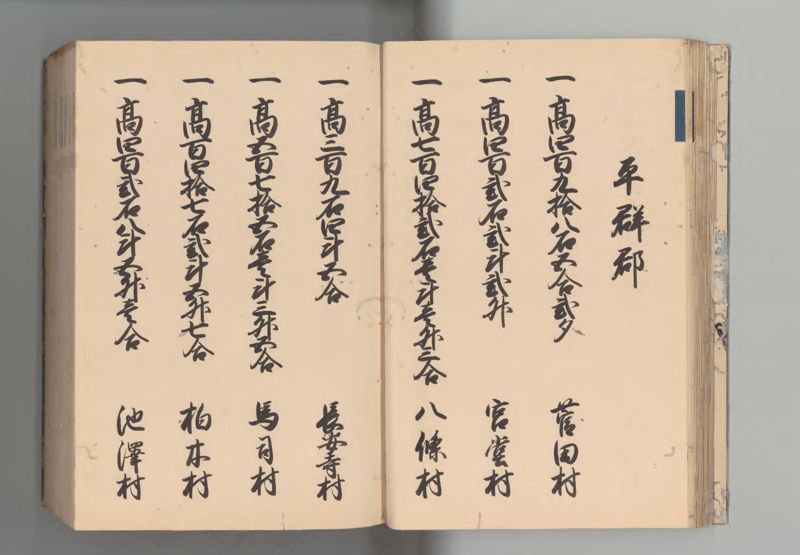 平群郡
一高四百九拾八石五合弐夕 菅田村
一高四百弐石弐斗弐升 宮堂村
一高七百四拾弐石壱斗壱升三合 八條村
一高三百九石四斗五合 長安寺村
一高五百七拾五石壱斗三升五合 馬司村
一高百四拾七石弐斗五升七合 柏木村
一高四百弐石八斗五升壱合 池澤村